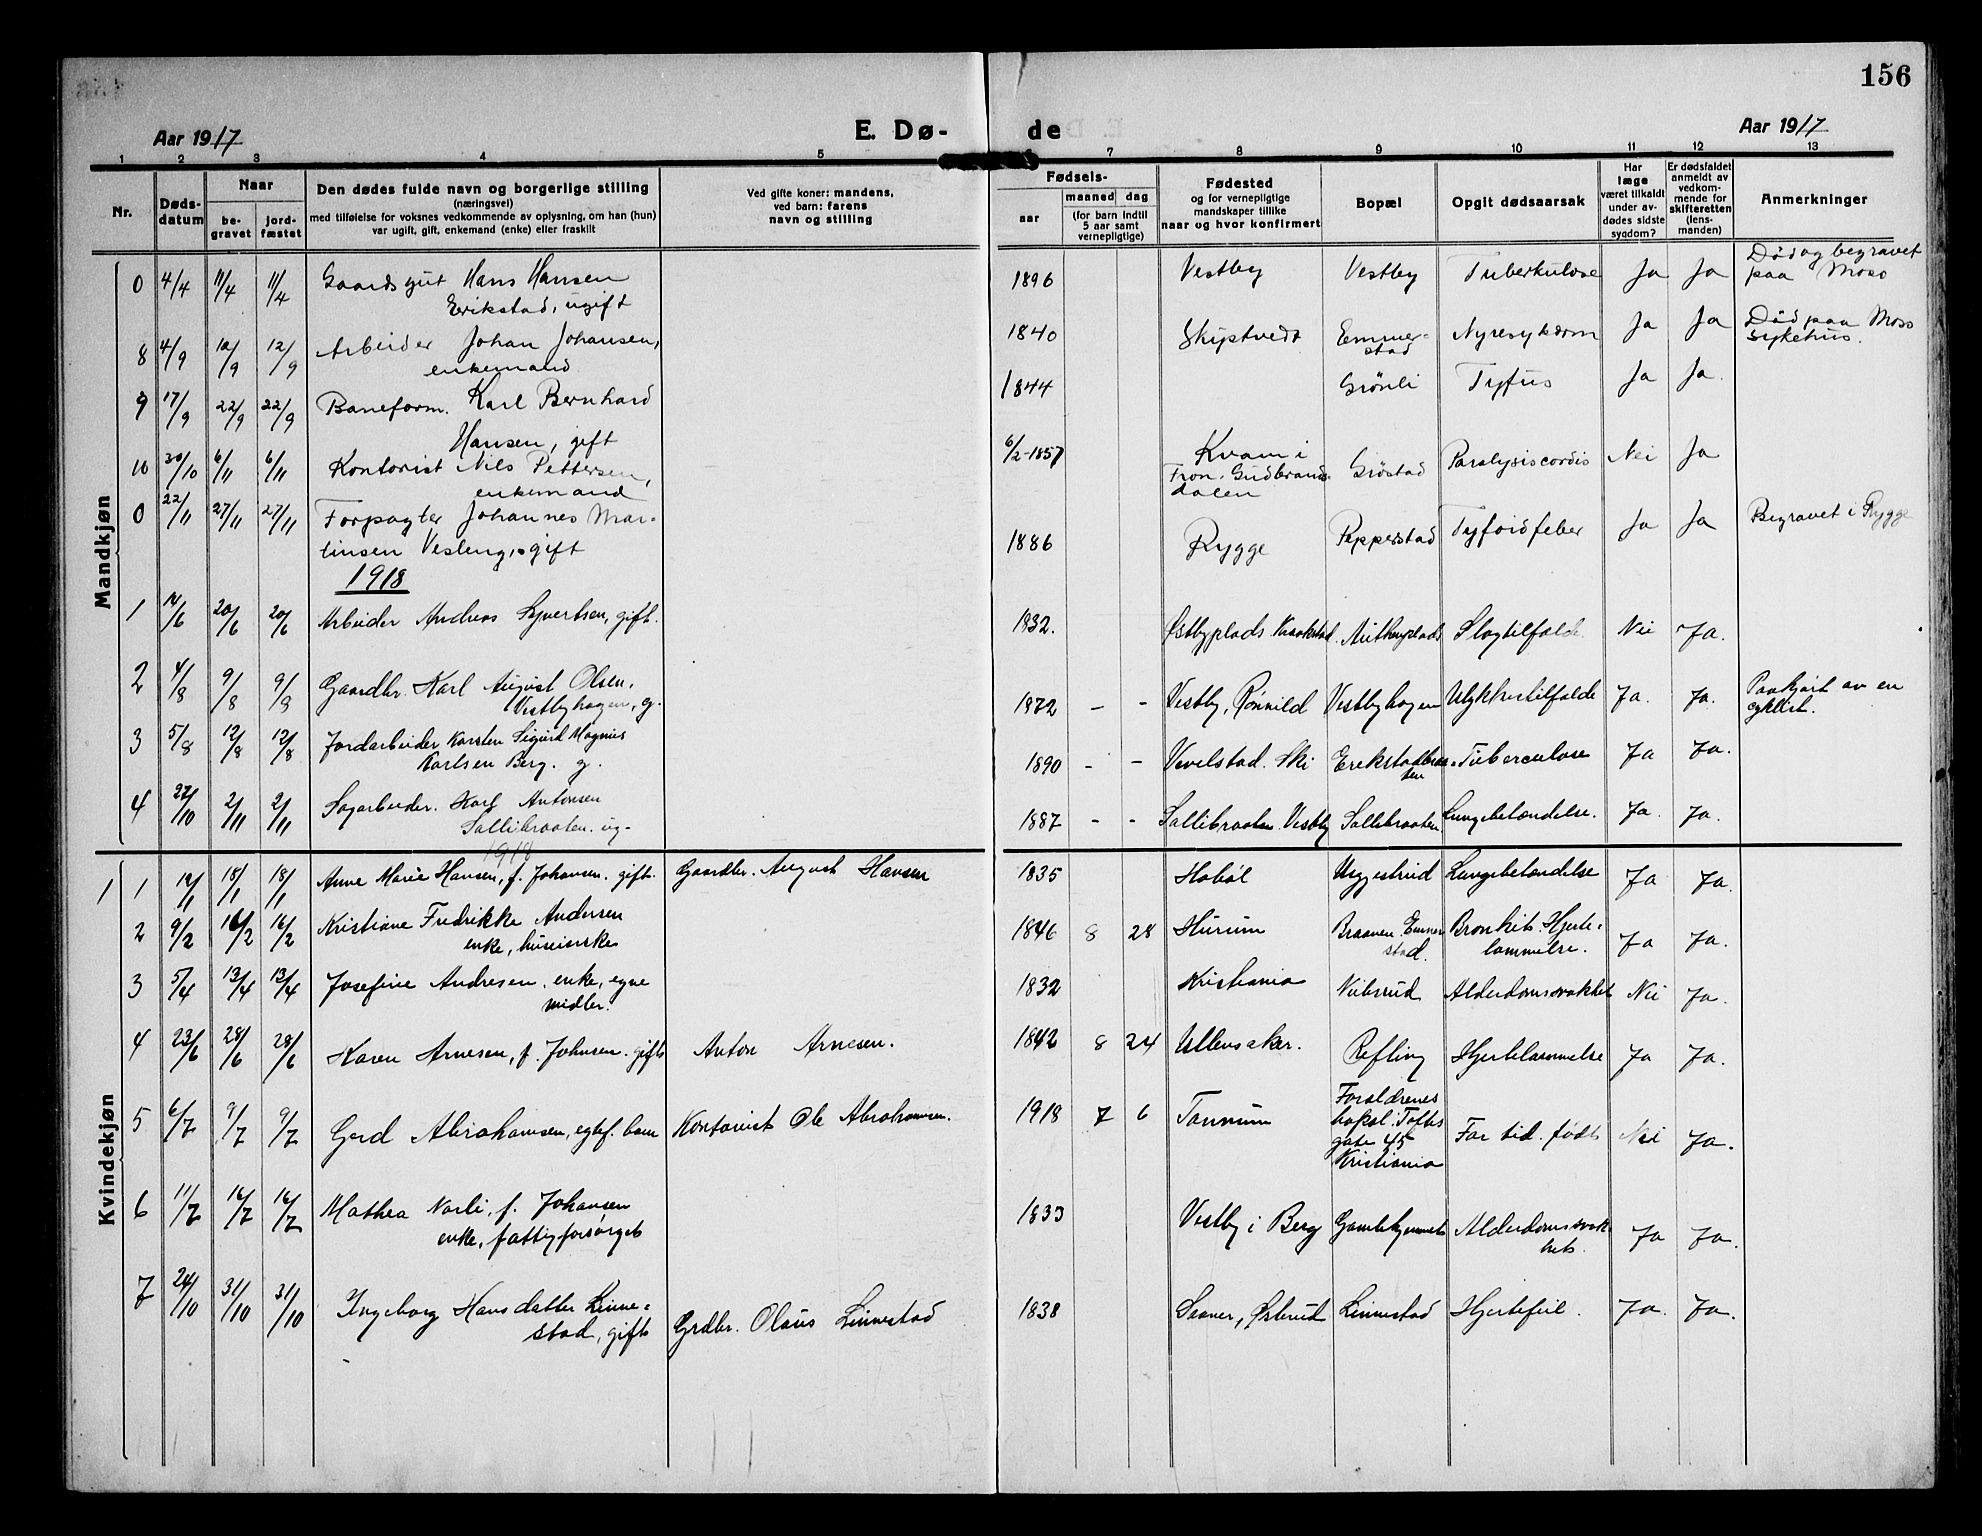 156
Aar 1917
E. Dø-
de
Aar 1917
1 2 3 4 5 6 7 8 9 10 11 12 13
Nr.
Døds-
datum
Naar
be-
gravet
jord-
fæstet
Den dødes fulde navn og borgerlige stilling
(næringsvei)
med tilføielse for voksnes vedkommende av oplysning, om han (hun)
var ugift, gift, enkemand (enke) eller fraskilt
Ved gifte koner: mandens,
ved barn: farens
navn og stilling
Fødsels-
aar
maaned
dag
(for barn indtil
5 aar samt
vernepligtige)
Fødested
og for vernepligtige
mandskaper tillike
naar og hvor konfirmert
Bopæl
Opgit dødsaarsak
Har
læge
været tilkaldt
under av-
dødes sidste
sygdom?
Er dødsfaldet
anmeldt av
vedkom-
mende for
skifteretten
(lens-
manden)
Anmerkninger
Mandkjøn
0 4/4 11/4 11/4 Gaardsgut Hans Hansen 1896 Vestby Vestby Tuberkulose Ja Ja Död og begravet
Erikstad, ugift paa Moss
8 4/9 12/9 12/9 Arbeider Johan Johansen, 1840 Skiptvedt Emmer- Nyresykdom Ja Ja Död paa Moss
enkemand stad sykehus.
9 17/9 22/9 22/9 Baneform. Karl Bernhard 1844 Grönli Tyfus Ja Ja.
Hansen, gift
10 30/10 6/11 6/11 Kontorist Nils Pettersen, 6/2-1857 Kvam i Gröstad Paralysis cordis Nei Ja
enkemand Fron. Gudbrands-
dalen
0 22/11 27/11 27/11 Forpagter Johannes Mar- 1886 Rygge Pepperstad Tyfoidfeber Ja Ja Begravet i Rygge
tinsen Vesleng, gift
1918
1 14/6 20/6 20/6 Arbeider Andreas Syvertsen, gift. 1832. Østbyplads Kraakstad Slagtilfælde Nei Ja.
2 4/8 9/8 9/8 Gaardbr. Karl August Olsen, 1872 - - Vestby, Rønnild Vestbyhagen Ulykkestilfælde Ja. Ja. Paakjørt av en
Vestbyhagen, g. cyklist.
3 5/8 12/8 12/8 Jordarbeider Karsten Sigurd Magnus 1890 - - Vevelstad. Ski Erekstadbraa- Tuberculose Ja Ja.
Karlsen Berg. g. ten
4 27/10 2/11 2/11 Sagarbeider. Karl Antonsen 1887 - - Sallibraaten Vestby Sallibraaten Lungebetændelse. Ja. Ja.
Sallibraaten. ug-
1918
Kvindekjøn
1 1 12/1 18/1 18/1 Anne Marie Hansen, f. Johansen. gift. Gaardbr. August Hansen 1835 Hobøl Lungebetændelse Ja Ja.
2 9/2 16/2 16/2 Kristiane Fredrikke Andersen 1846 8 28 Hurum Braanen Emmer Bronkit. Hjerte- Ja Ja.
enke, huseierske stad. lammelse.
3 5/4 13/4 13/4 Josefine Andresen, enke, egne 1832 Kristiania Alderdomssvakhet Nei Ja.
midler.
4 23/6 28/6 28/6 Karen Arnesen, f. Johnsen. gift Anton Arnesen. 1842 8 24 Ullensaker. Refling Hjertelammelse Ja Ja.
5 6/7 9/7 9/7 Gerd Abrahamsen, egtef. barn Kontorist Ole Abrahamsen. 1918 7 6 Tannum Foraldrenes For tid. født Nei Ja.
bopæl: Toftes
gate 45
Kristiania
6 11/7 16/7 16/7 Mathea Norli, f. Johansen 1833 Vestby i Berg Gamlehjemmet Alderdomssvak- Ja Ja.
enke, fattigforsørget het.
7 24/10 31/10 31/10 Ingeborg Hansdatter Linne- Grdbr. Olaus Linnestad 1838 Saaner, Østerud Linnestad Hjertefeil. Ja. Ja.
stad, gift